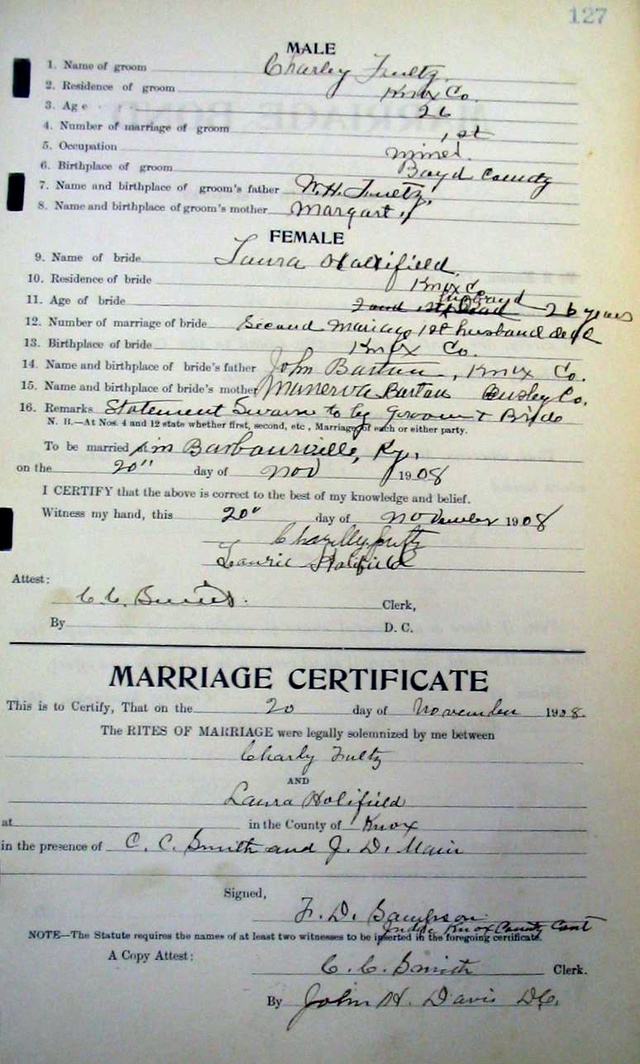 127
MALE
1. Name of groom Charley Fultz
2. Residence of groom Knox Co.
3. Age 26
4. Number of marriage of groom 1st
5. Occupation Miner.
6. Birthplace of groom Boyd County
7. Name and birthplace of groom's father W. H. Fultz,
8. Name and birthplace of groom's mother Margart "
FEMALE
9. Name of bride Laura Holifield.
10. Residence of bride Knox Co
11. Age of bride 26 years
12. Number of marriage of bride Second Mariage 1st husband dead
13. Birthplace of bride Knox Co.
14. Name and birthplace of bride's father John Bartun, Knox Co.
15. Name and birthplace of bride's mother Minerva Bartun Ousley Co.
16. Remarks Statement Sworn to by Groom & Bride
N. B.—At Nos. 4 and 12 state whether first, second, etc., Marriage of each or either party.
To be married in Barbourville, Ky.
on the 20" day of Nov 1908
I CERTIFY that the above is correct to the best of my knowledge and belief.
Witness my hand, this 20" day of November 1908
Charlly Fultz
Laurie Holifield
Attest:
C. C. Clerk,
By D. C.
MARRIAGE CERTIFICATE
This is to Certify, That on the 20 day of November 1908.
The RITES OF MARRIAGE were legally solemnized by me between
Charly Fultz
AND
Laura Holifield
at in the County of Knox
in the presence of C. C. Smith and J. D. Main
Signed,
F. D. Sampson
Judge Knox County Court
NOTE—The Statute requires the names of at least two witnesses to be inserted in the foregoing certificate.
A Copy Attest:
C. C. Smith Clerk.
By John H. Davis DC.